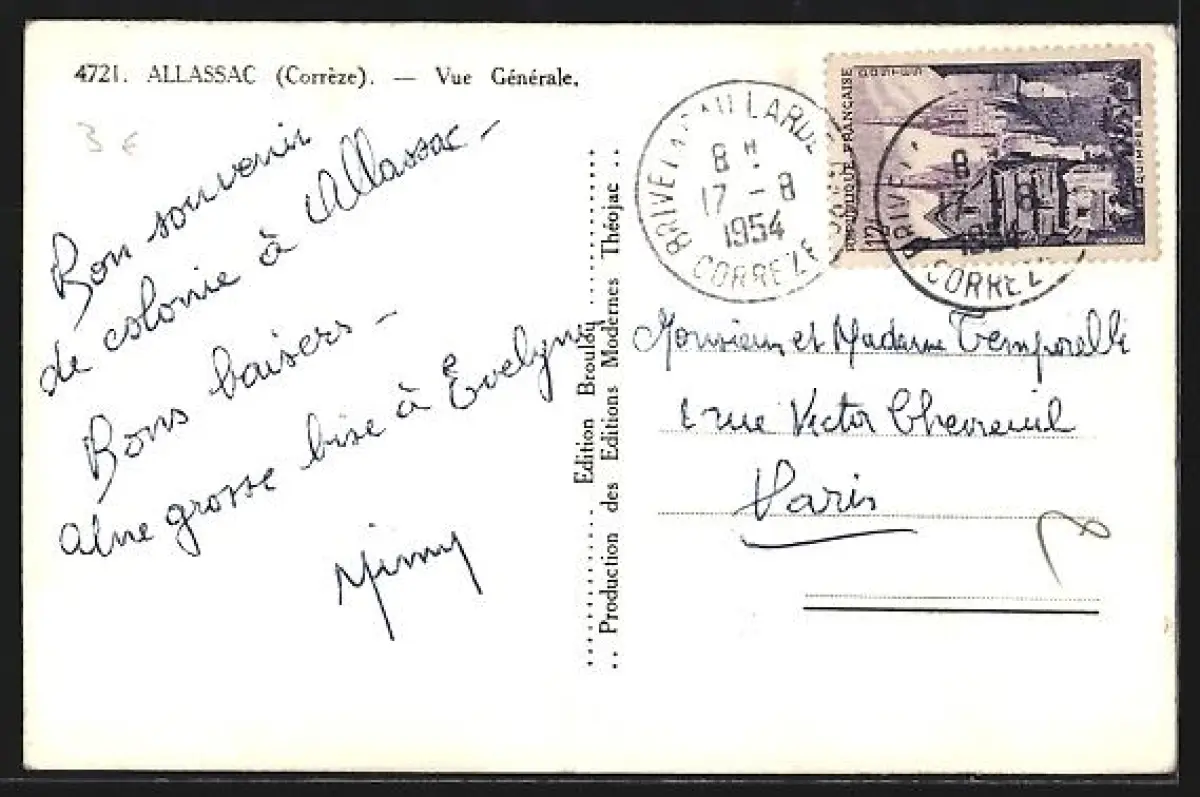 4721. ALLASSAC (Corrèze). — Vue Générale.
3 €
Bon souvenir
de colonie à Allassac —
Bons baisers —
une grosse bise à Evelyne
Mimy
Edition Brouldy
Production des Editions Modernes Théojac
BRIVE LA GAILLARDE
8 H
17 - 8
1954
CORREZE
REPUBLIQUE FRANÇAISE
POSTES
12F
QUIMPER
BRIVE
8
17 - 8
1954
CORREZ
Monsieur et Madame Temporelli
rue Victor Chevreuil
Paris